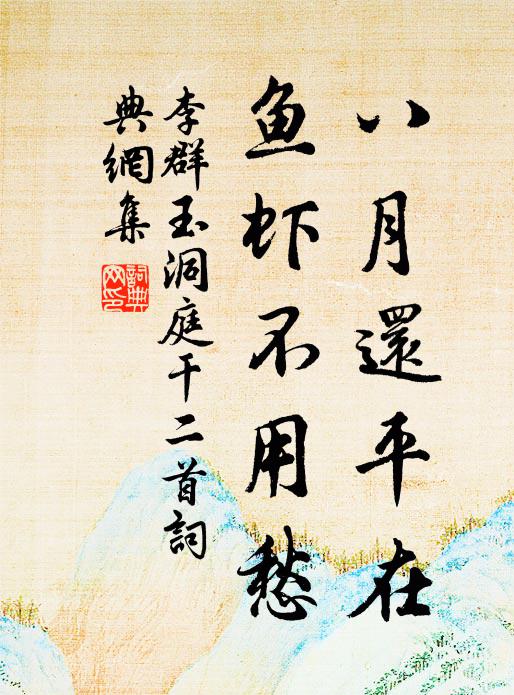 八月還平在
鱼虾不用愁
李群玉洞庭干二首詞
典網集
詞典
网印